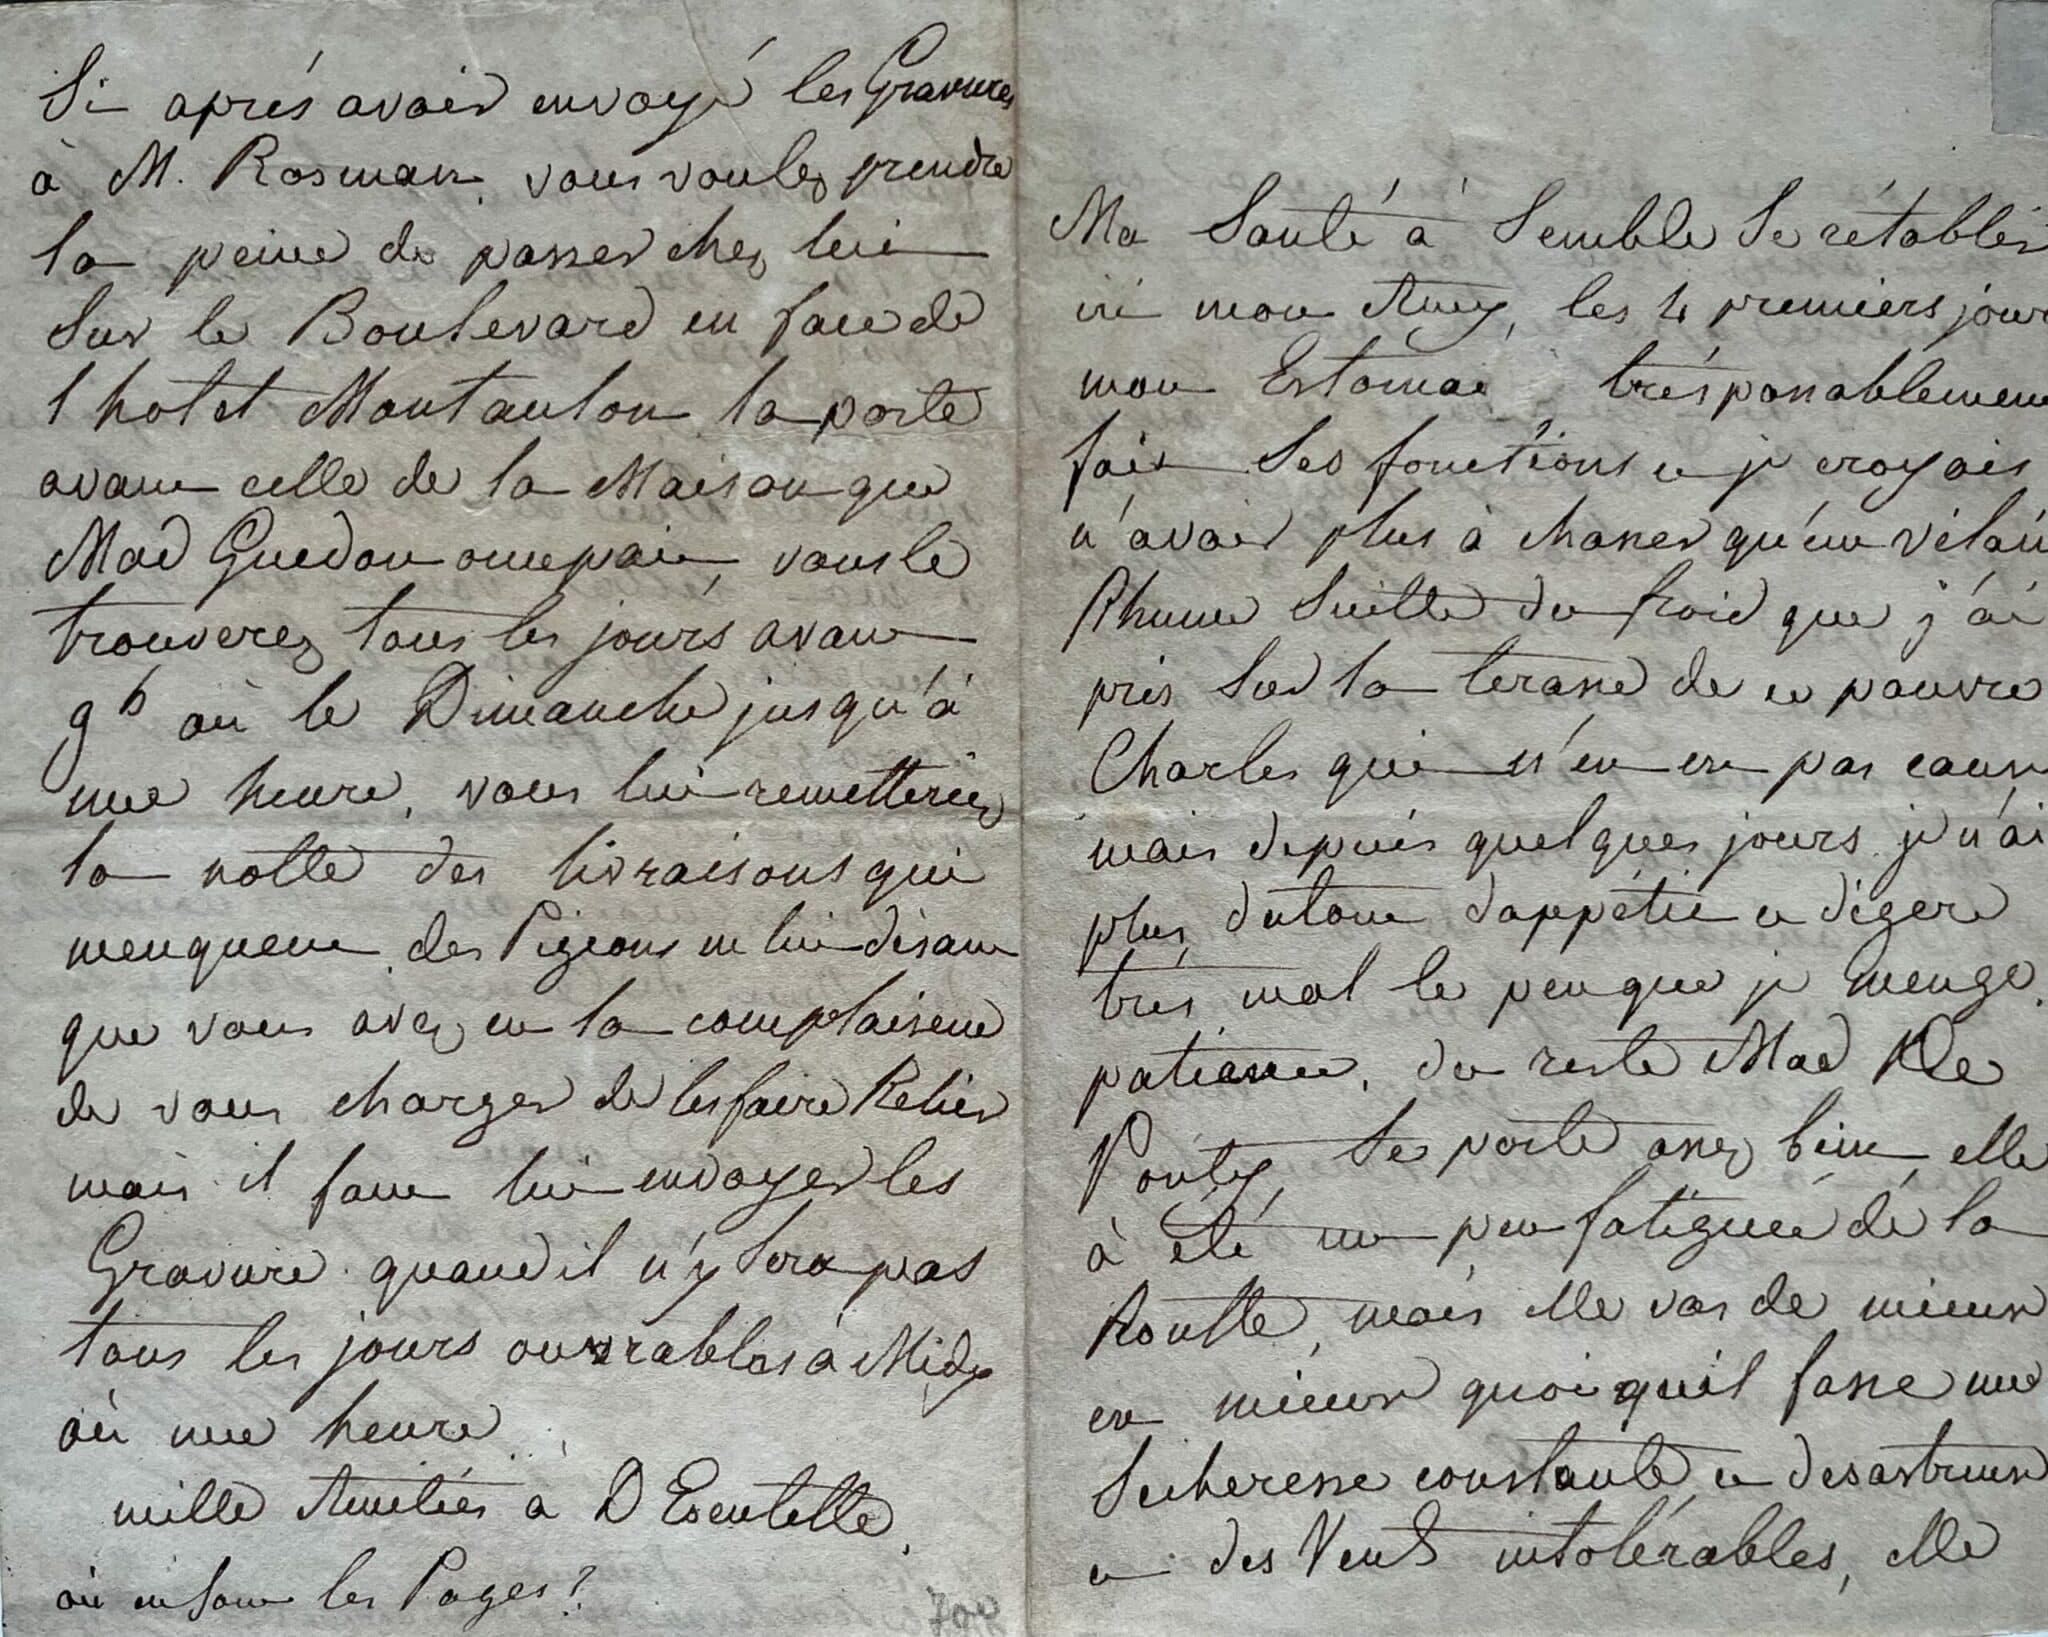 Si aprés avoir envoyé les Gravures
à M. Rosman vous voulez prendre
la peine de passer chez lui
Sur le Boulevard en face de
l hotel Montaulon la porte
avant celle de la Maison que
Mad Guedon occupait, vous le
trouverez tous les jours avant
9h où le Dimanche jusqu'à
une heure, vous lui remetteriez
la notte des livraisons qui
menquent des Pigeons en lui disant
que vous avez eu la complaisence
de vous charger de les faire Relier
mais il faut lui envoyer les
Gravure quand il n'y sera pas
tous les jours ouvrables à Midy
où une heure
mille Amitiés à D Escutette.
où en sont les Pages?
Ma Santé à Semblé Se rétablir
ici mon Amy, les 4 premiers jour
mon Estomac trés passablement
fait Ses fonctions et je croyais
n'avoir plus à chasser qu'un vilain
Rhume Suitte du froid que j'ai
pris Sur la terasse de ce pauvre
Charles qui n'en est pas cause
mais depuis quelques jours je n'ai
plus dutout d'appétit et digere
trés mal le peu que je menge.
patience. du reste Mad De
Ponty Se porte assez bien, elle
à été un peu fatiguée de la
Routte, mais elle vas de mieux
en mieux quoiqu'il fasse une
Secheresse constante et desastreuse
et des Vents intolérables, elle